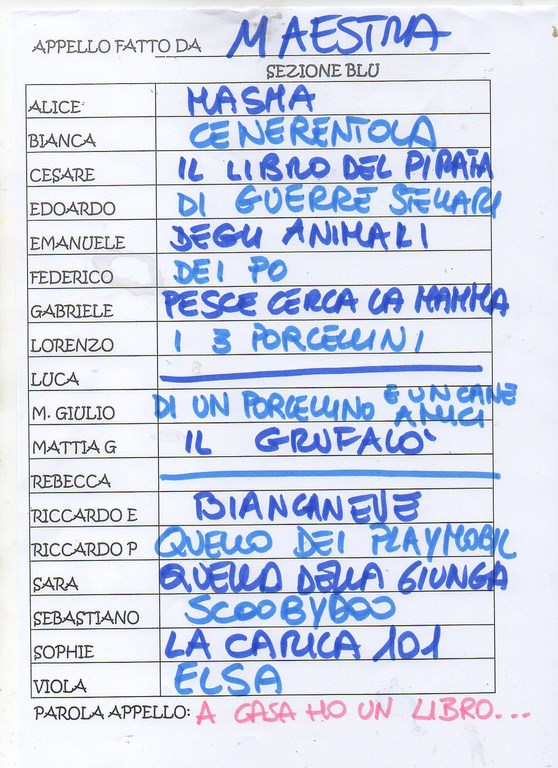 APPELLO FATTO DA MAESTRA
SEZIONE BLU
ALICE MASHA
BIANCA CENERENTOLA
CESARE IL LIBRO DEL PIRATA
EDOARDO DI GUERRE STELLARI
EMANUELE DEGLI ANIMALI
FEDERICO DEI PO
GABRIELE PESCE CERCA LA MAMMA
LORENZO I 3 PORCELLINI
LUCA
M. GIULIO DI UN PORCELLINO E UN CANE AMICI
MATTIA G IL GRUFALO'
REBECCA
RICCARDO E BIANCANEVE
RICCARDO P QUELLO DEI PLAYMOBIL
SARA QUELLO DELLA GIUNGA
SEBASTIANO SCOOBYDOO
SOPHIE LA CARICA 101
VIOLA ELSA
PAROLA APPELLO: A CASA HO UN LIBRO...